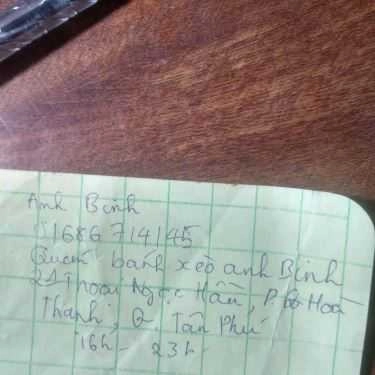 Anh Bình
01686 714145
Quán bánh xèo anh Bình
21 Thoại Ngọc Hầu, P. Hoà
Thạnh, Q. Tân Phú
16h - 23h